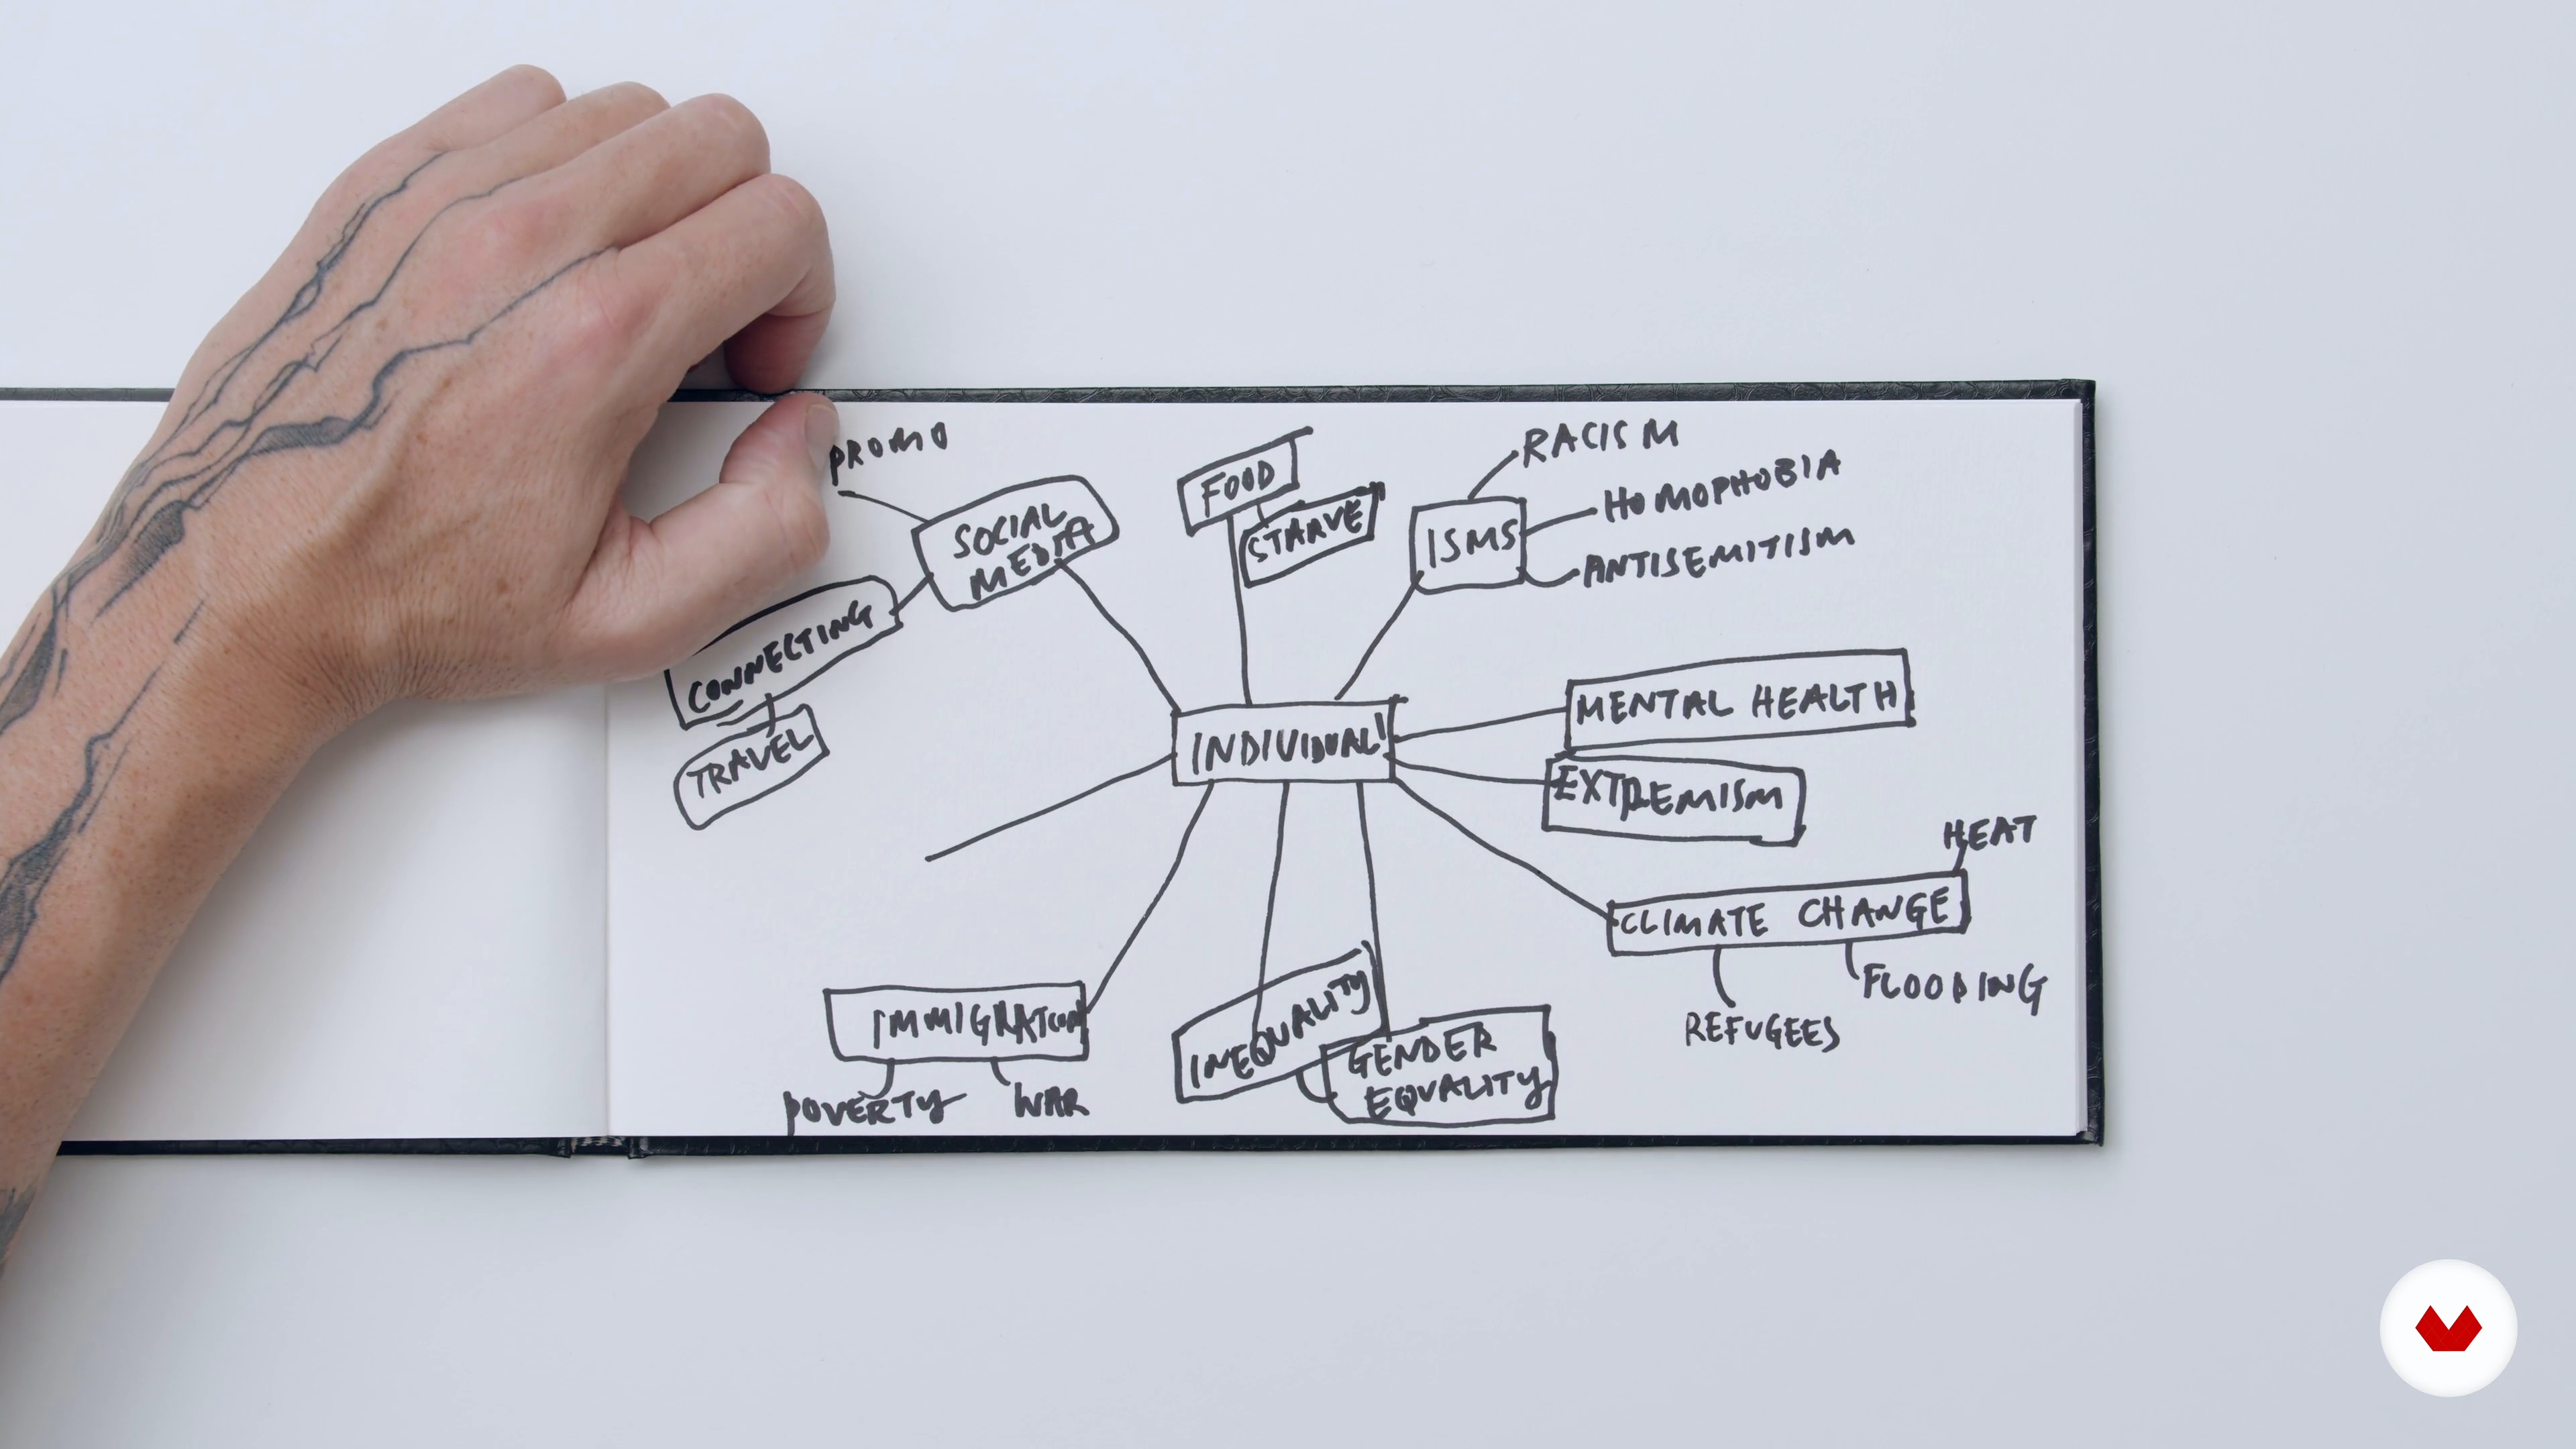 PROMO
SOCIAL
MEDIA
CONNECTING
TRAVEL
FOOD
STARVE
ISMS
RACISM
HOMOPHOBIA
ANTISEMITISM
INDIVIDUAL
MENTAL HEALTH
EXTREMISM
HEAT
CLIMATE CHANGE
FLOODING
REFUGEES
IMMIGRATION
POVERTY
WAR
INEQUALITY
GENDER
EQUALITY